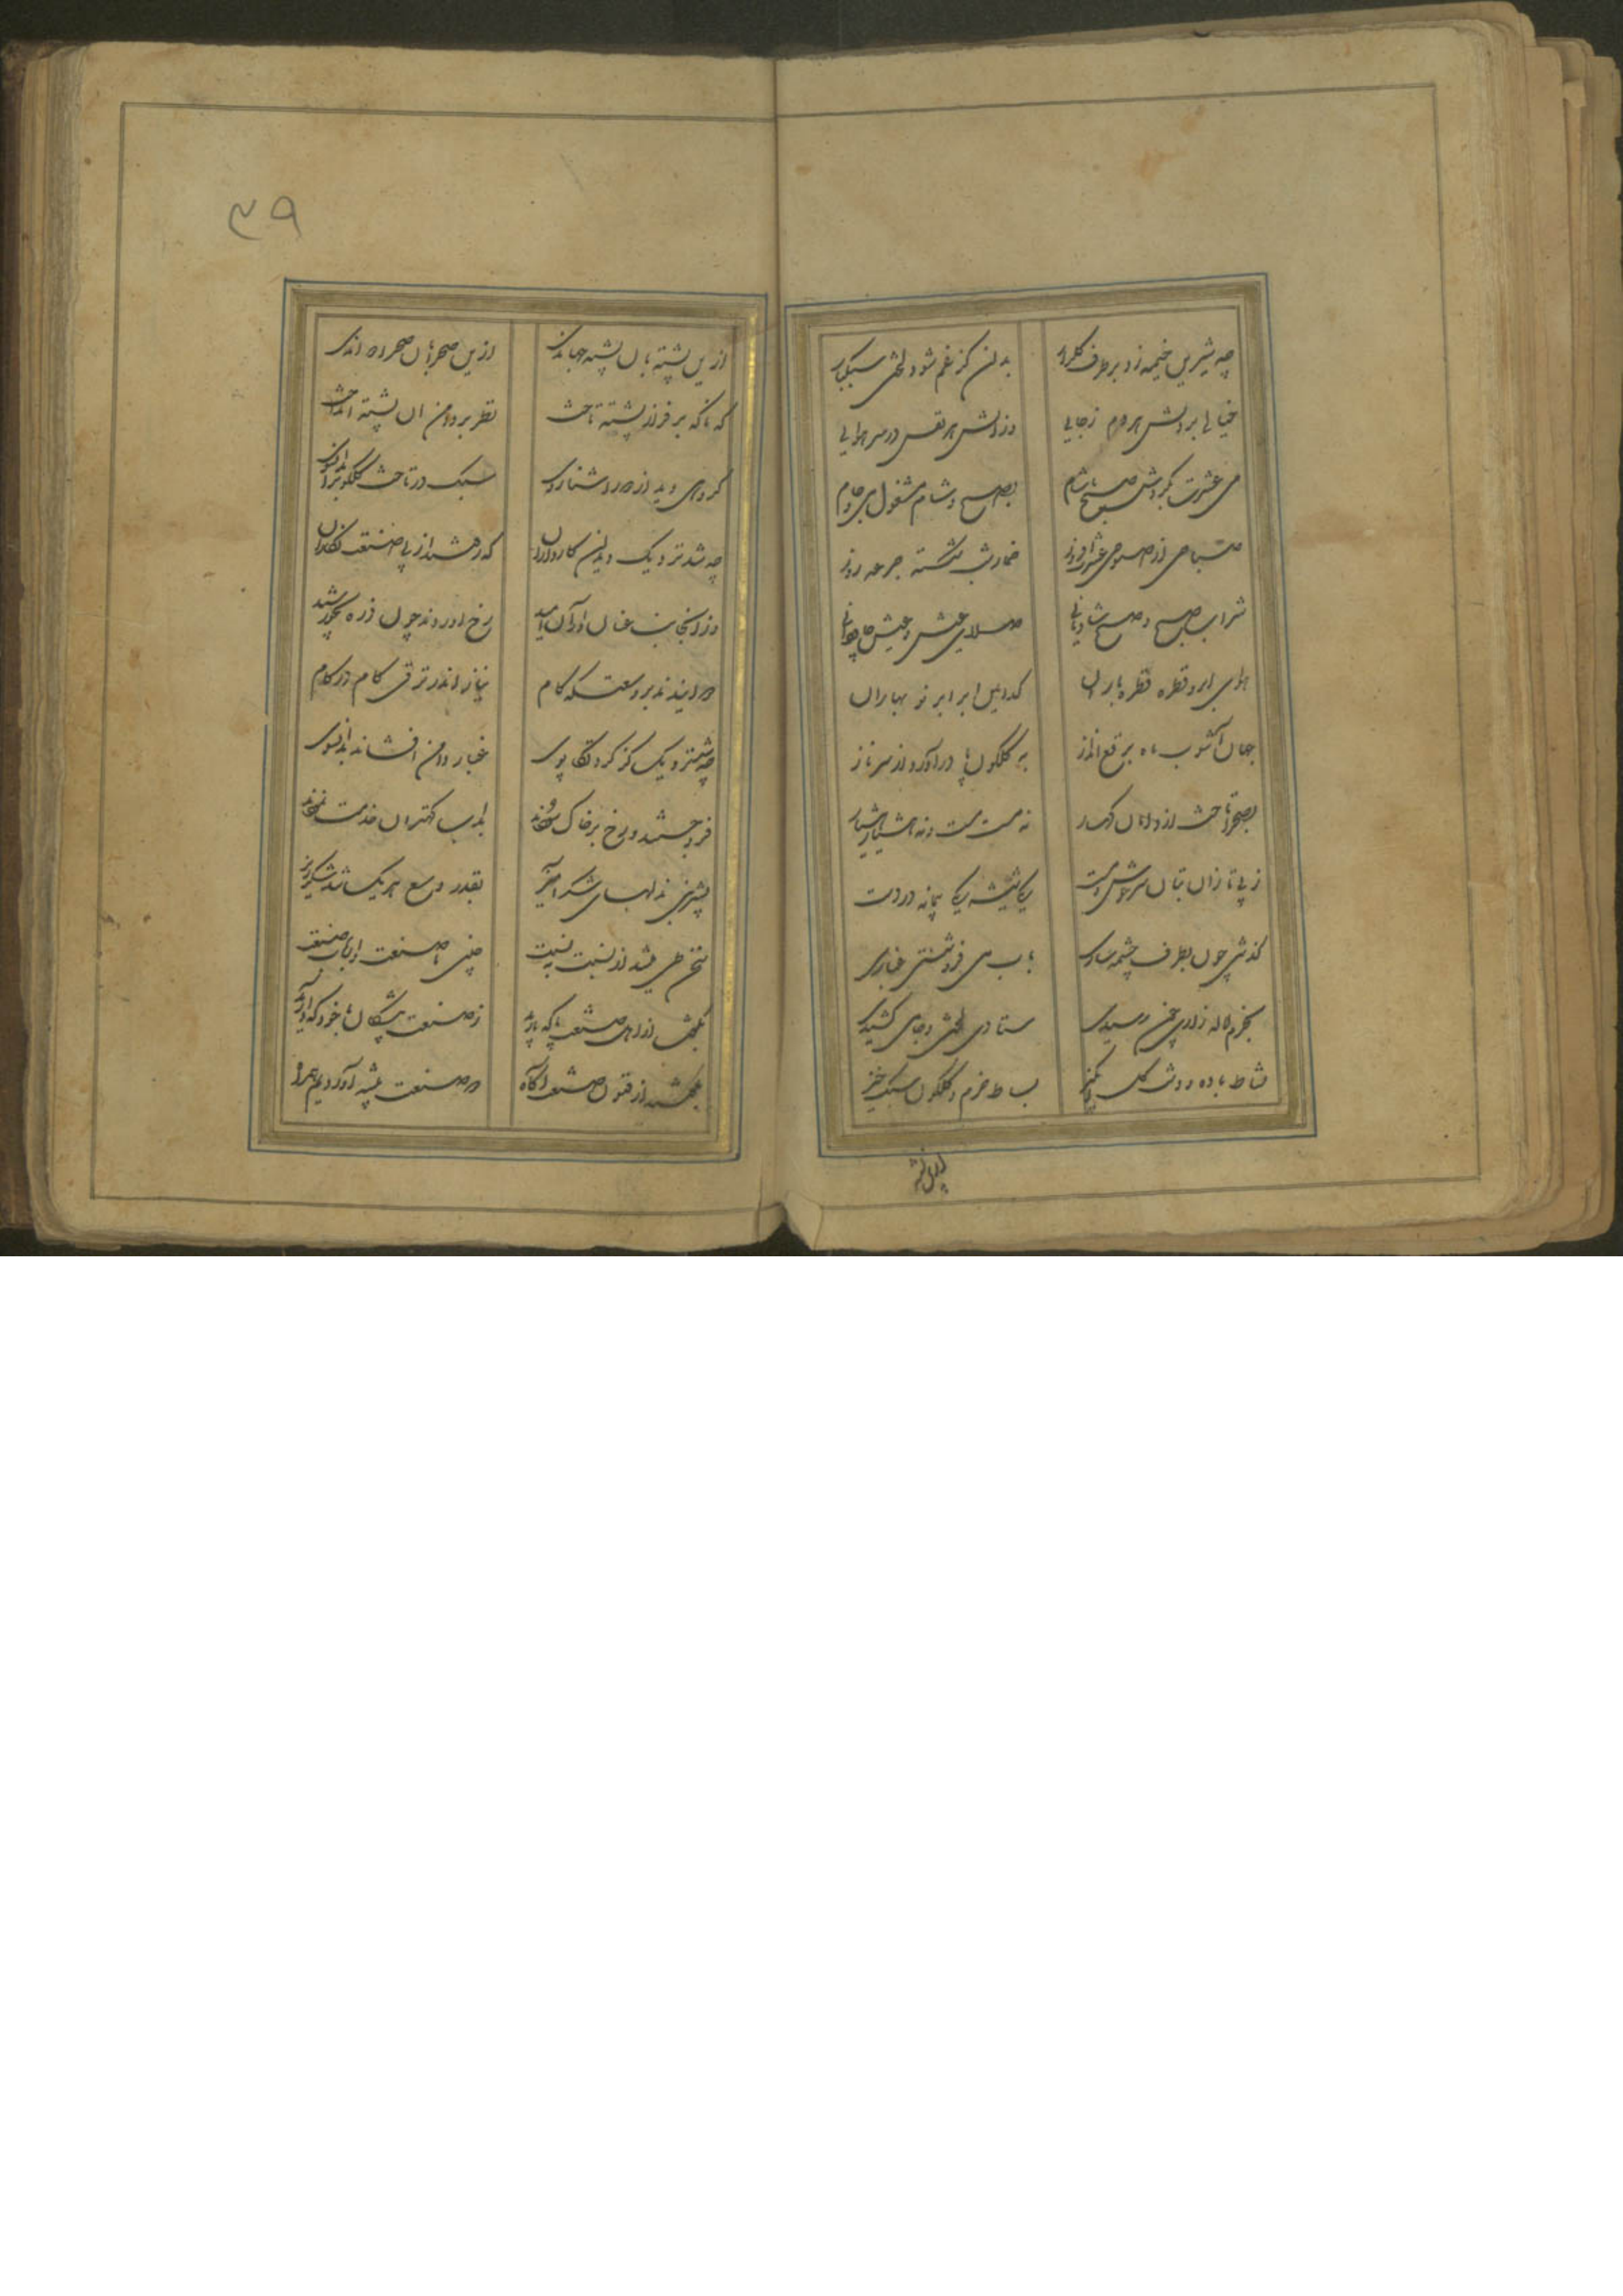 چه شیرین خیمه زد بر طرف گلزار بدان کز غم شود لختی سبکبار
خیالی بر دلش هر دم ز جایی وزانش هر نفس در سر هوایی
می عشرت بگردش صبح تا شام بصبح و شام مشغول می و جام
صباحی از صبوحی عشرت اندوز خمار شب شکسته جرعه روز
شراب صبح و صبح شادمانی صلای عیش و عیش جاودانی
هوای ابر و قطره قطره باران کدامین ابر ابر نو بهاران
جهان آشوب ماه برقع انداز به گلگون پا در آورد از سر ناز
بصحرا تاخت از دامان کهسار نه مست مست و نه هشیار هشیار
ز پی تازان بتان سرخوش و مست یکی شیشه یکی پیمانه در دست
گذشتی چون بطرف چشمه ساری بآب می فرو شستی غباری
بخرم لاله زاری چون رسیدی ستادی لختی و جامی کشیدی
نشاط باده و دشت گل انگیز بساط خرم و گلگون سبک خیز
ازین پشته
۳۹
ازین پشته بآن پشته جهاندی ازین صحرا بآن صحرا دواندی
که ناگه بر فراز پشته تاخت نظر بر دامن آن پشته انداخت
گروهی دید از دور آشنا روی سبک در تاخت گلگون را بدان سوی
چه شد نزدیک دید آن کاردانان که رفتند از پی صنعت نگاران
وز آن جانب عنان اورا امید رخ آوردند چون ذره بخورشید
دوانیدند بر وسعتگه کام نیاز اندر ترقی گام در گام
چه شد نزدیک کز گرد تکاپوی غبار دامن افشاند بدان سوی
فرو جستند و رخ بر خاک سودند بلب کهتران خدمت نمودند
بشیرین بذله‌های شکرآمیز بقدر وسع هر یک شد شکرریز
سخن طی میشد از نسبت بنسبت چنین تا صنعت و ارباب صنعت
بگفت از اهل صنعت با که یارید ز صنعت پیشگان با خود که دارید
بگفتند از فنون صنعت آگاه دو صنعت پیشه آوردیم همراه